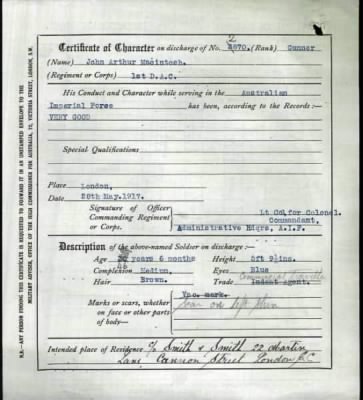 Certificate of Character on discharge of No. 2670. (Rank) Gunner
(Name) John Arthur Macintosh.
(Regiment or Corps) 1st D.A.C.
His Conduct and Character while serving in the Australian
Imperial Force has been, according to the Records:
VERY GOOD
Special Qualifications
Place London,
Date 28th May. 1917.
Signature of Officer Lt Col, for Colonel.
Commanding Regiment Commandant,
or Corps. Administrative Hdqrs, A.I.F.
Description of the above-named Soldier on discharge:
Age years 6 months Height 5ft 9½ins.
Complexion Medium, Eyes Blue
Commercial Traveller
Hair Brown. Trade Indent Agent.
Marks or scars, whether Vac. mark.
on face or other parts Scar on left shin
of body—
Intended place of Residence c/o Smith & Smith 22 Martin
Lane Cannon Street London E.C
N.B.—ANY PERSON FINDING THIS CERTIFICATE IS REQUESTED TO FORWARD IT IN AN UNSTAMPED ENVELOPE TO THE
MILITARY ADVISER, OFFICE OF THE HIGH COMMISSIONER FOR AUSTRALIA, 72, VICTORIA STREET, LONDON, S.W.